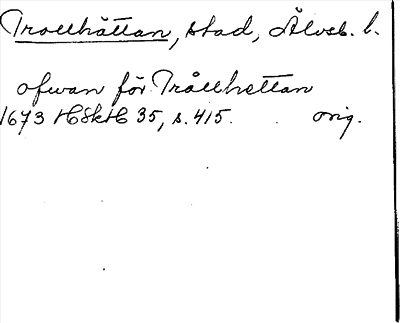 Trollhättan, stad, Älvsb. l.
ofwan för Trållhettan
1673 HSkH 35, s. 415. orig.